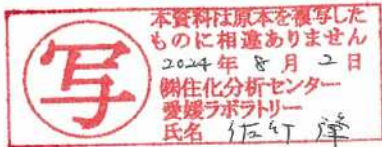 写
本資料は原本を複写した
ものに相違ありません
2024年8月2日
㈱住化分析センター
愛媛ラボラトリー
氏名